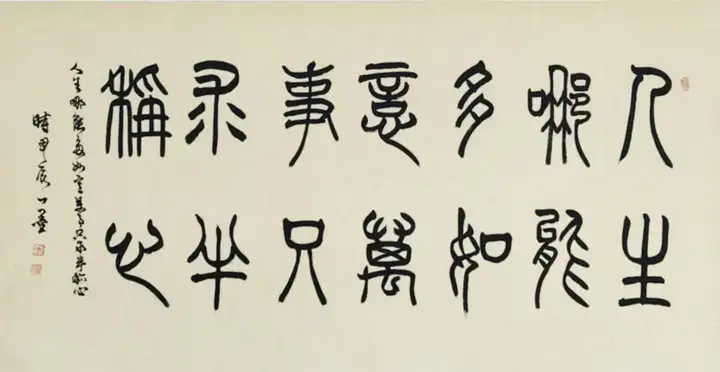 人生
哪能
多如
意萬
事只
求半
稱心
人生哪能多如意萬事只求半称心
時甲辰